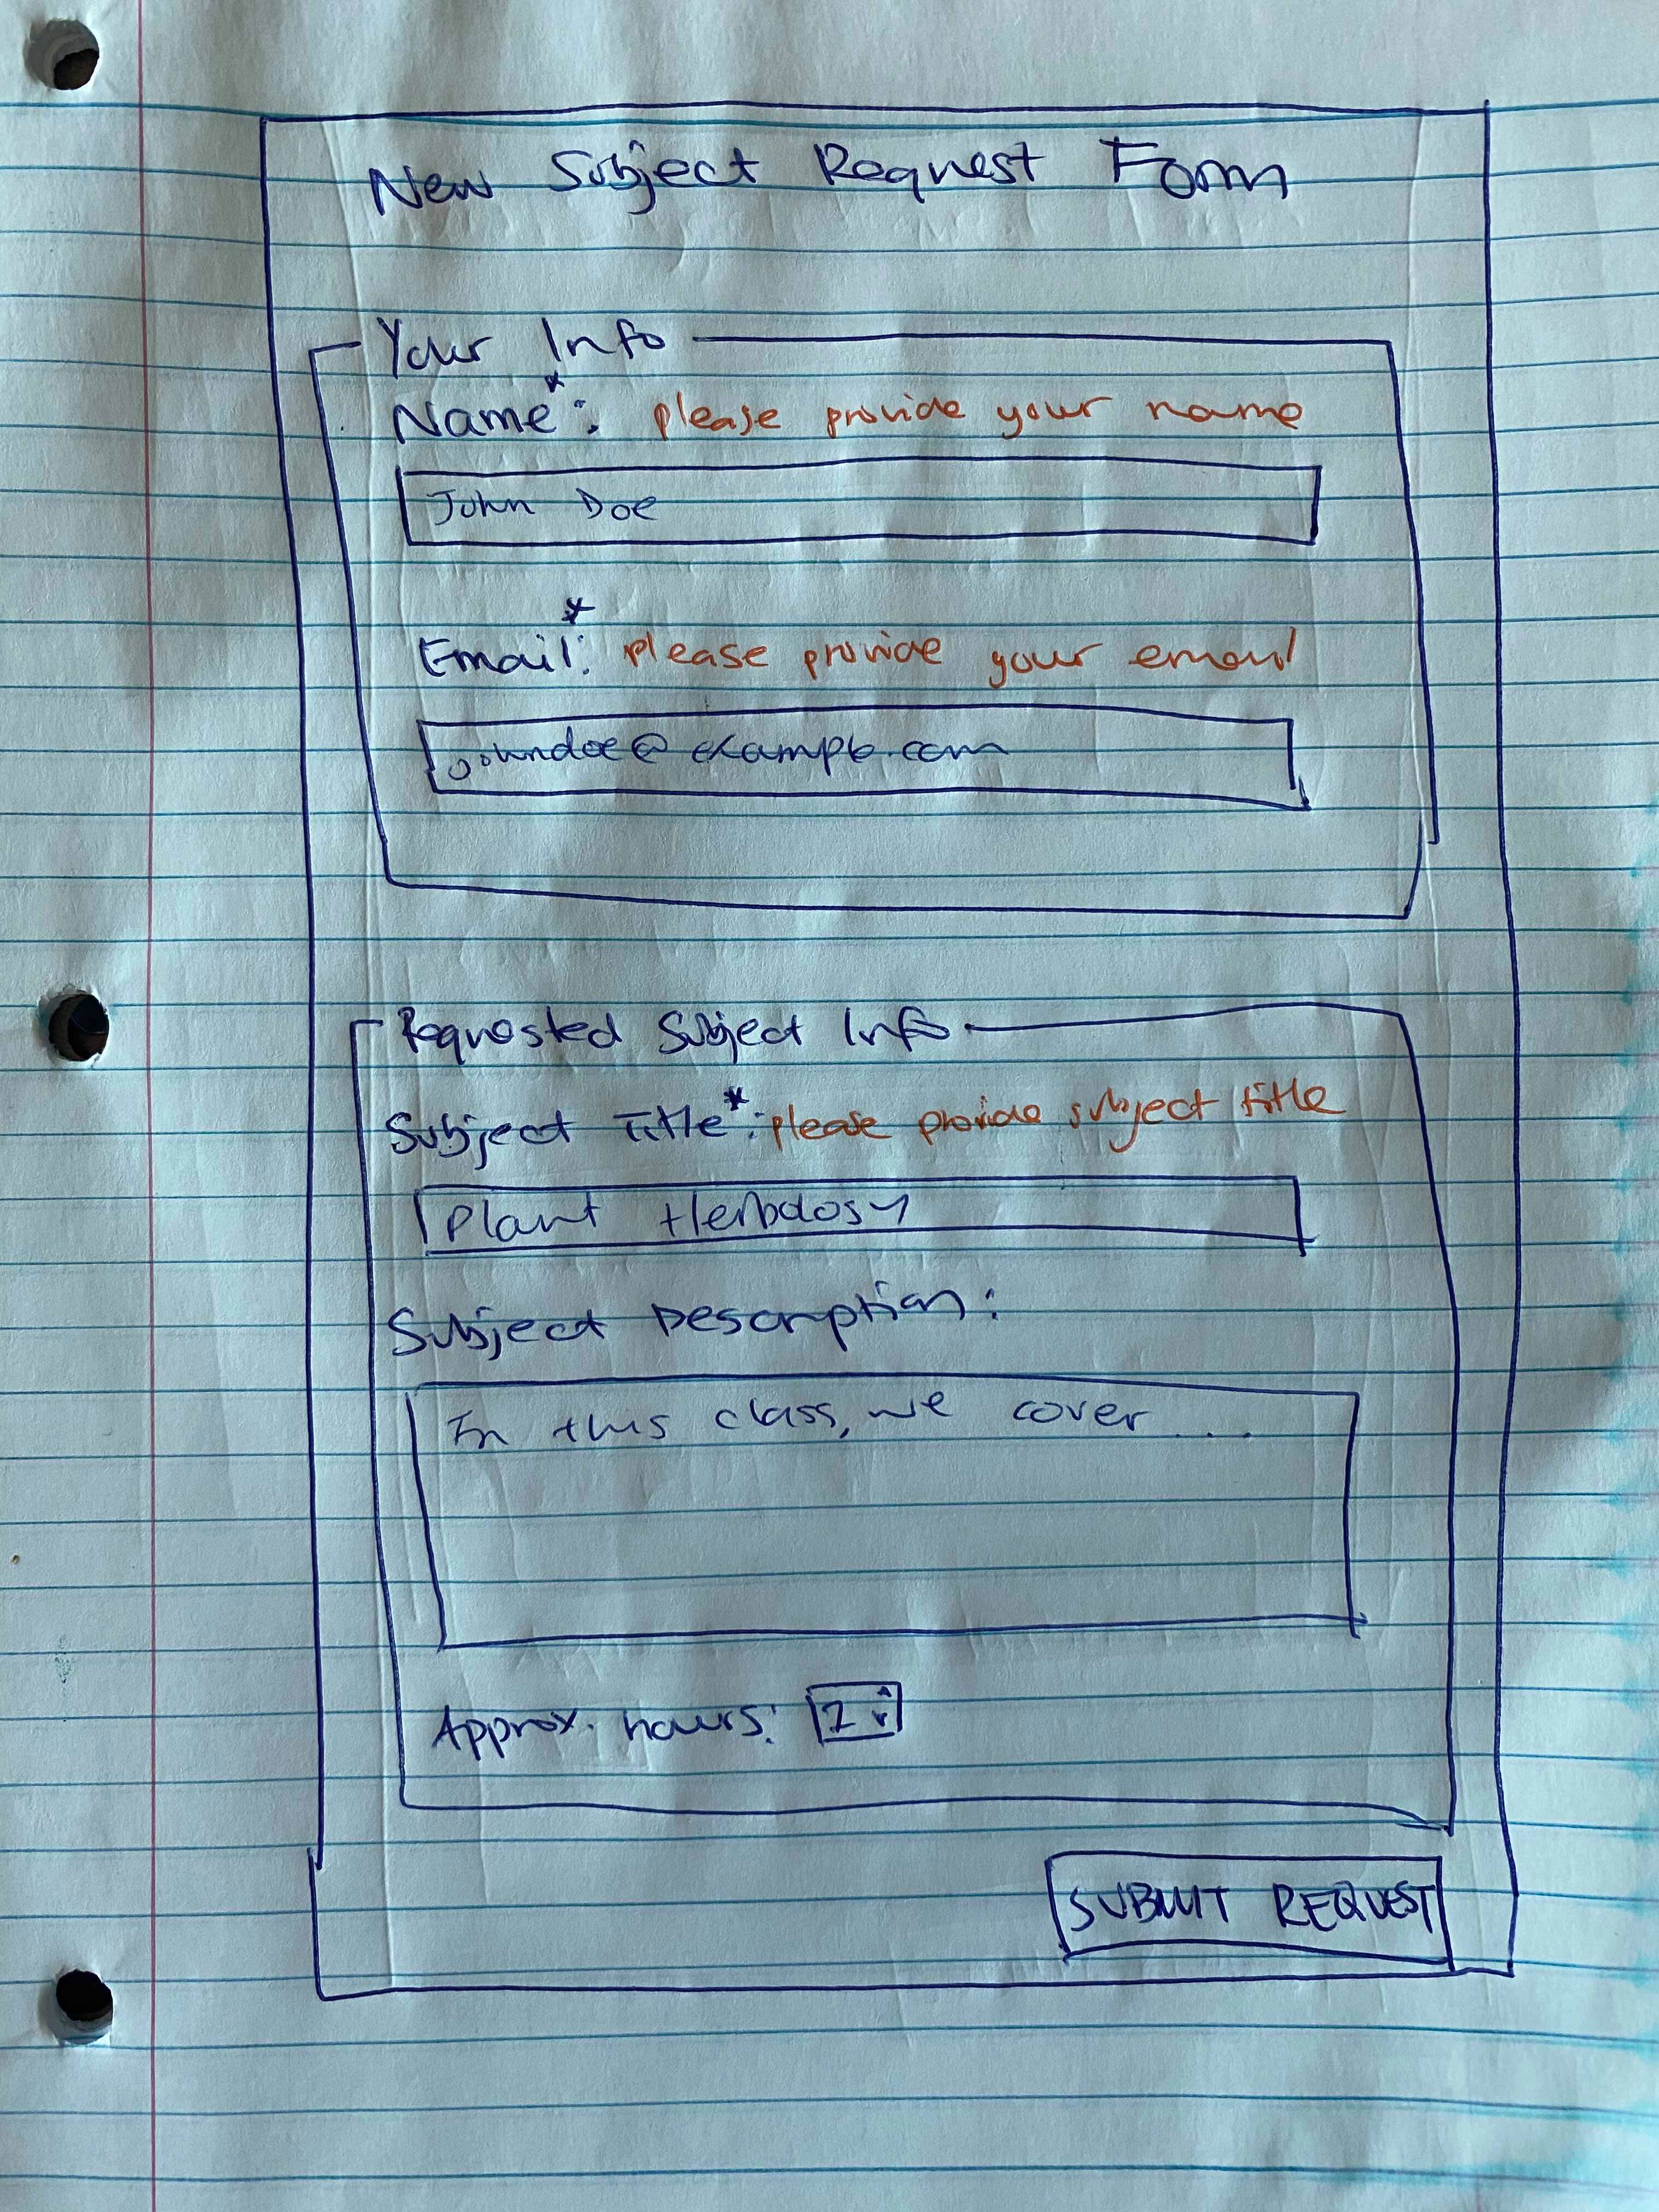 New Subject Request Form
Your Info
Name*: please provide your name
John Doe
Email*: please provide your email
johndoe@example.com
Requested Subject Info
Subject Title*: please provide subject title
Plant
Subject Description:
In this class, we cover ...
Approx. hours:
SUBMIT REQUEST